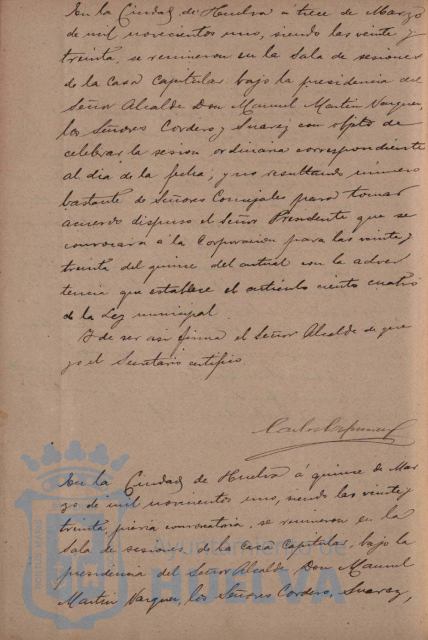 En la Ciudad de Huelva á trece de Marzo
de mil novecientos uno, siendo las veinte y
treinta, se reunieron en la Sala de sesiones
de la Casa Capitular bajo la presidencia del
Señor Alcalde Don Manuel Martin Vazquez,
los Señores Cordero y Suarez con objeto de
celebrar la sesion ordinaria correspondiente
al dia de la fecha; y no resultando número
bastante de Señores Concejales para tomar
acuerdo dispuso el Señor Presidente que se
convocara á la Corporacion para las veinte y
treinta del quince del actual con la adver
tencia que establece el artículo ciento cuatro
de la Ley municipal.
Y de ser asi firma el Señor Alcalde de que
yo el Secretario certifico.
En la Ciudad de Huelva á quince de Mar
zo de mil novecientos uno, siendo las veinte y
treinta, prévia convocatoria, se reunieron en la
Sala de sesiones de la Casa Capitular bajo la
presidencia del Señor Alcalde Don Manuel
Martin Vazquez, los Señores Cordero, Suarez,
Ayuntamiento de
HUELVA